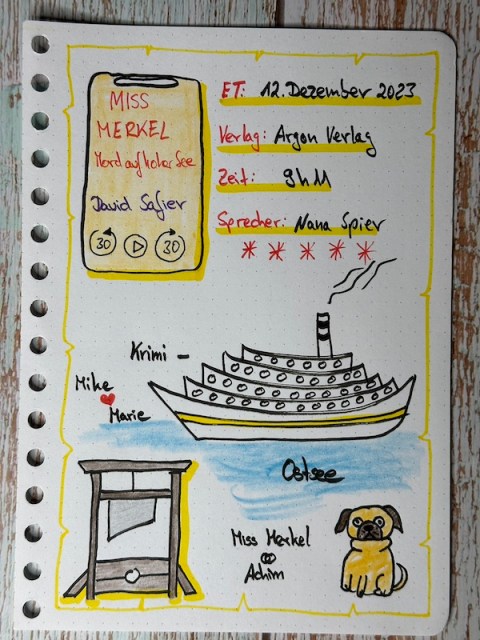 MISS
MERKEL
Mord auf hoher See
David Safier
30 30
ET: 12. Dezember 2023
Verlag: Argon Verlag
Zeit: 9h 11
Sprecher: Nana Spier
Krimi -
Mike
Marie
Ostsee
Miss Merkel
Achim